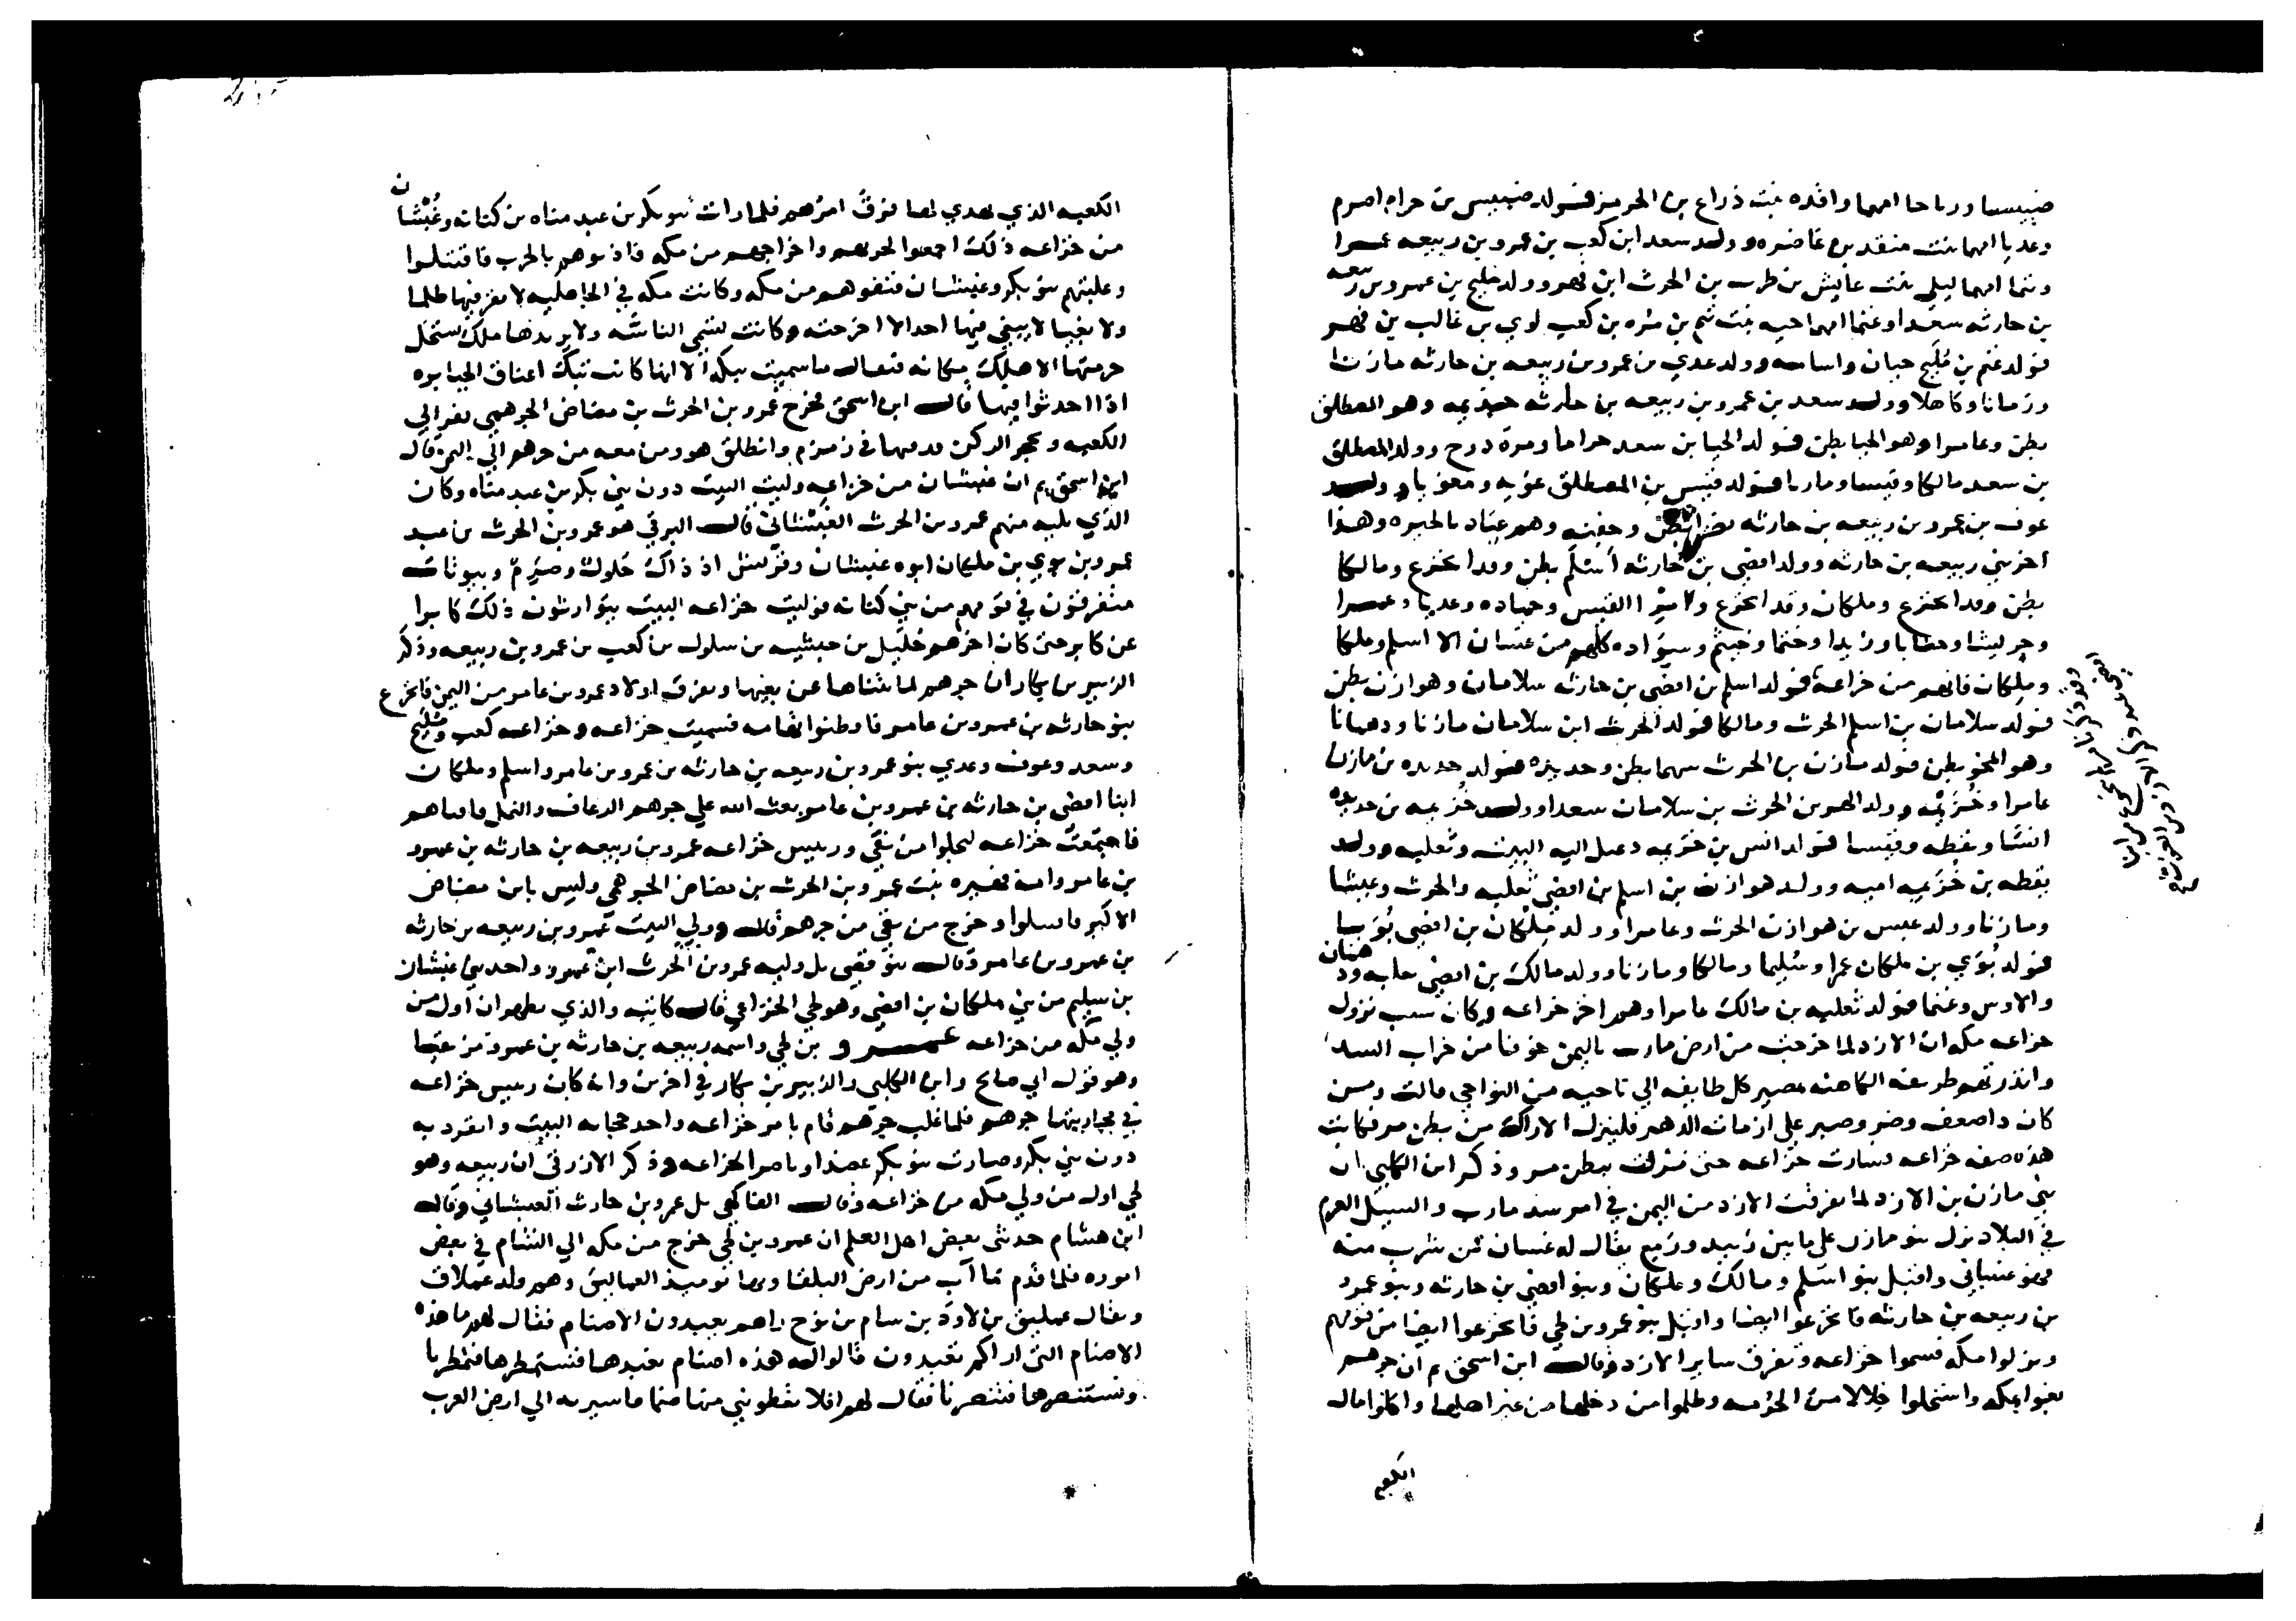 ضبيسا ورياحا امهما وافده بنت ذراع بن الحرمز فولد ضبيس بن حرام اصرم
وعديا امهما بنت منقذ بن غاضره وولد سعد ابن كعب بن عمرو بن ربيعه عمرا
امهما ليلى بنت عايش بن طرب بن الحرث ابن فهر وولد مليح بن عمرو بن ربيعه
بن حارثه سعدا وغنما امهما حيه بنت تيم بن مره بن كعب لوي بن غالب بن فهر
فولد غنم بن مليح حبان واسامه وولد عدي بن عمرو بن ربيعه بن حارثه مازنا
وزمانا وكاهلا وولد سعد بن عمرو بن ربيعه بن حارثه جذيمه وهو المصطلق
بطن وعامرا وهو الحيا بطن فولد الحيا بن سعد حراما ومرة درج وولد المصطلق
بن سعد مالكا وقيسا وماريا فولد قيس بن المصطلق عويه ومعويا وولد
عوف بن عمرو بن ربيعه بن حارثه نصرا بطن وجفنه وهم عباد بالحيره وهذا
اخر بني ربيعه بن حارثه وولد افصى بن حارثه اسلم بطن وقد انخزع ومالكا
بطن وقد انخزع وملكان وقد انخزع وامرا القيس وجهاده وعديا وعمرا
وجريشا وحطابا وزيدا وخثما وخيثم وسواده كلهم من غسان الا اسلم وملكا
وملكان فانهم من خزاعة فولد اسلم بن افصى بن حارثه سلامان وهوازن بطن
فولد سلامان بن اسلم الحرث ومالكا فولد الحرث ابن سلامان مازنا ودهمانا
وهو المخو بطن فولد مازن بن الحرث سهما بطن وحديده فولد حديده بن مازن
عامرا وخزيمه وولد الهو بن الحرث بن سلامان سعدا وولد خزيمه بن حديده
انسا ويقظه وقيسا فولد انس بن خزيمه دعبل اليه البيت وثعلبه وولد
يقظه بن خزيمه اميه وولد هوازن بن اسلم بن افصى ثعلبه والحرث وعبسا
ومازنا وولد عبس بن هوازن الحرث وعامرا وولد ملكان بن افصى بويا
فولد بوي بن ملكان عمرا وسليما ومالكا ومازنا وولد مالك بن افصى ثعلبه وذهبان
والاوس وغنما فولد ثعلبه بن مالك عامرا وهم اخر خزاعه وكان سبب نزول
خزاعه مكه ان الازد لما خرجت من ارض مارب باليمن خوفا من خراب السد
وانذرتهم طريفه الكاهنه بمصير كل طايفه الى ناحيه من النواحي قالت ومن
كان ذا ضعف وضر وصبر على ازمات الدهر فلينزل الاراك من بطن مر فكانت
هذه صفه خزاعه فسارت خزاعه حتى نزلت ببطن مر وذكر ابن الكلبي ان
بني مازن بن الازد لما تفرقت الازد من اليمن في امر سد مارب والسيل العرم
في البلاد نزل بنو مازن على ما بين زبيد ورمع يقال له غسان فمن شرب منه
فهو غساني واقبل بنو اسلم ومالك وملكان وبنو افصى بن حارثه وبنو عمرو
بن ربيعه بن حارثه فانخزعوا ايضا واقبل بنو عمرو بن لحي فانخزعوا ايضا من قومهم
ونزلوا مكه فسموا خزاعه وتفرق ساير الازد وقال ابن اسحق ثم ان جرهم
بغوا بمكه واستحلوا خلالا من الحرمه وظلموا من دخلها من غير اهلها واكلوا مال
الكعبه
الكعبه الذي يهدي لها فرق امرهم فلما رات بنو بكر بن عبد مناه بن كنانه وغبشان
من خزاعه ذلك اجمعوا لحربهم واخراجهم من مكه فاذنوهم بالحرب فاقتتلوا
وغلبتهم بنو بكر وغبشان فنفوهم من مكه وكانت مكه في الجاهليه لا تقر فيها ظلما
ولا بغيا لا يبغي فيها احد الا اخرجته وكانت تسمى الناسّه ولا يريدها ملك يستحل
حرمتها الا هلك مكانه فيقال ما سميت ببكه الا انها كانت تبك اعناق الجبابره
اذا احدثوا فيها قال ابن اسحق فخرج عمرو بن الحرث بن مضاض الجرهمي بغزالي
الكعبه وحجر الركن فدفنها في زمزم وانطلق هو ومن معه من جرهم الى اليمن قال
ابن اسحق ثم ان غبشان من خزاعه وليت البيت دون بني بكر بن عبد مناه وكان
الذي يليه منهم عمرو بن الحرث الغبشاني قال البرقي هو عمرو بن الحرث بن عبد
عمرو بن بوي بن ملكان ابوه غبشان وقريش اذ ذاك حلول وصرم وبيوتات
متفرقون في قومهم من بني كنانه فوليت خزاعه البيت يتوارثون ذلك كابرا
عن كابر حتى كان اخرهم حليل بن حبشيه بن سلول بن كعب بن عمرو بن ربيعه وذكر
الزبير بن بكار ان جرهم لما تناها عن بغيها وتفرق اولاد عمرو بن عامر من اليمن فانخزع
بنو حارثه بن عمرو بن عامر فاوطنوا تهامه فسميت خزاعه وخزاعه كعب ومليح
وسعد وعوف وعدي بنو عمرو بن ربيعه بن حارثه بن عمرو بن عامر واسلم وملكان
ابنا افصى بن حارثه بن عمرو بن عامر بعث الله على جرهم الرعاف والنمل فافناهم
فاجتمعت خزاعه ليجلوا من بقي ورييس خزاعه عمرو بن ربيعه بن حارثه بن عمرو
بن عامر وامه فهيره بنت عمرو بن الحرث بن مضاض الجرهمي وليس بابن مضاض
الاكبر فاقتتلوا وخرج من بقي من جرهم قال وولي البيت عمرو بن ربيعه بن حارثه
بن عمرو بن عامر وقال بنو قصي بل وليه عمرو بن الحرث ابن عمرو واحد بني غبشان
بن سليم من بني ملكان بن افصى وهو لحي الخزاعي قال كاتبه والذي يظهر ان اول من
ولي مكه من خزاعه عمرو بن لحي واسمه ربيعه بن حارثه بن عمرو مزيقيا
وهو قول ابي صالح وابن الكلبي والزبير بن بكار في اخرين وانه كان رييس خزاعه
في محاربتها جرهم فلما غلب جرهم قام بامر خزاعه واخذ حجابه البيت وانفرد به
دون بني بكر وصارت بنو بكر عضدا وناصرا لخزاعه وذكر الازرقي ان ربيعه وهو
لحي اول من ولي مكه من خزاعه وقال الفاكهي بل عمرو بن حارث الغبشاني وقال
ابن هشام حدثني بعض اهل العلم ان عمرو بن لحي خرج من مكه الى الشام في بعض
اموره فلما قدم مآب من ارض البلقا وبها يوميذ العماليق وهم ولد عملاق
ويقال عمليق بن لاوذ بن سام بن نوح راهم يعبدون الاصنام فقال لهم ما هذه
الاصنام التي اراكم تعبدون قالوا له هذه اصنام نعبدها فنستمطرها فتمطرنا
ونستنصرها فتنصرنا فقال لهم افلا تعطوني منها صنما فاسير به الى ارض العرب